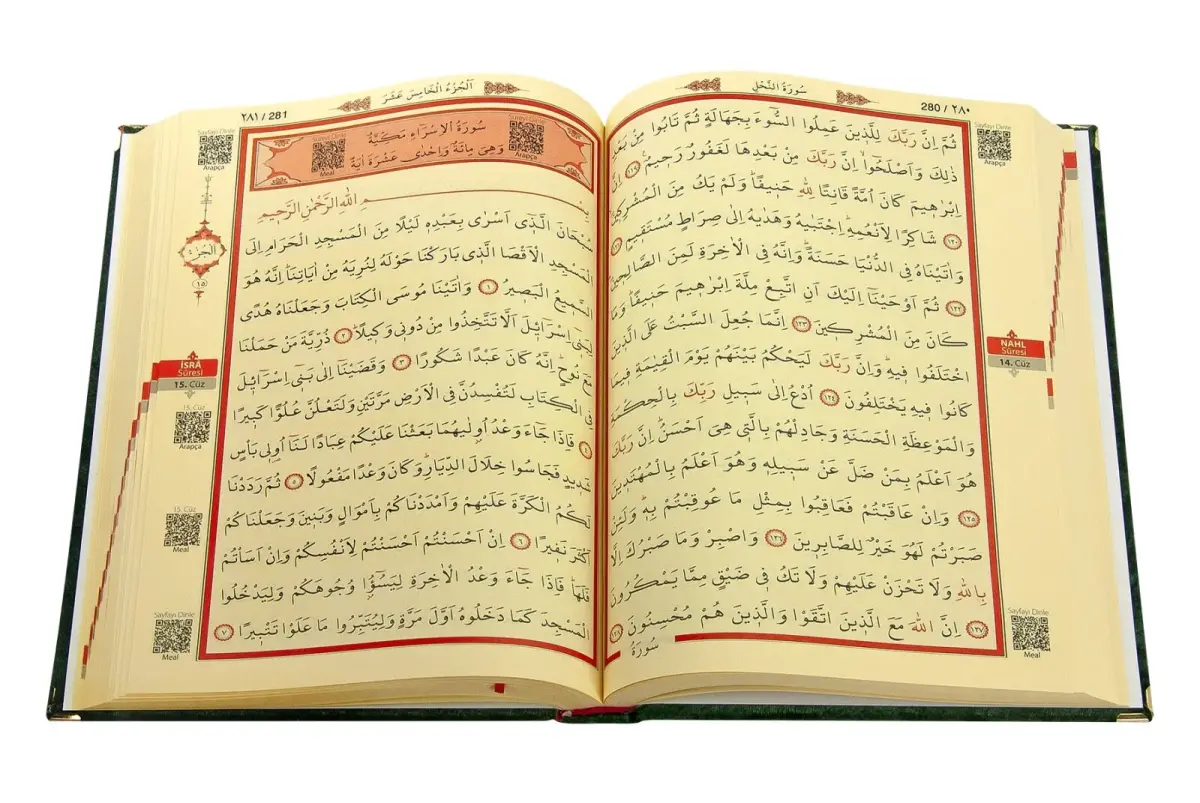 سُورَةُ النَّحْلِ
280 / ٢٨٠
Sayfayı Dinle
Arapça
ثُمَّ اِنَّ رَبَّكَ لِلَّذ۪ينَ عَمِلُوا السُّٓوءَ بِجَهَالَةٍ ثُمَّ تَابُوا مِنْ بَعْدِ
ذٰلِكَ وَاَصْلَحُٓوا اِنَّ رَبَّكَ مِنْ بَعْدِهَا لَغَفُورٌ رَح۪يمٌ ﴿١١٩﴾ اِنَّ
اِبْرٰه۪يمَ كَانَ اُمَّةً قَانِتًا لِلّٰهِ حَن۪يفًاۜ وَلَمْ يَكُ مِنَ الْمُشْرِك۪ينَ
﴿١٢٠﴾ شَاكِرًا لِاَنْعُمِهِۜ اِجْتَبٰيهُ وَهَدٰيهُ اِلٰى صِرَاطٍ مُسْتَق۪يمٍ ﴿١٢١﴾
وَاٰتَيْنَاهُ فِي الدُّنْيَا حَسَنَةًۜ وَاِنَّهُ فِي الْاٰخِرَةِ لَمِنَ الصَّالِح۪ينَ
﴿١٢٢﴾ ثُمَّ اَوْحَيْنَٓا اِلَيْكَ اَنِ اتَّبِعْ مِلَّةَ اِبْرٰه۪يمَ حَن۪يفًاۜ وَمَا
كَانَ مِنَ الْمُشْرِك۪ينَ ﴿١٢٣﴾ اِنَّمَا جُعِلَ السَّبْتُ عَلَى الَّذ۪ينَ
اخْتَلَفُوا ف۪يهِۜ وَاِنَّ رَبَّكَ لَيَحْكُمُ بَيْنَهُمْ يَوْمَ الْقِيٰمَةِ ف۪يمَا
كَانُوا ف۪يهِ يَخْتَلِفُونَ ﴿١٢٤﴾ اُدْعُ اِلٰى سَب۪يلِ رَبِّكَ بِالْحِكْمَةِ
وَالْمَوْعِظَةِ الْحَسَنَةِ وَجَادِلْهُمْ بِالَّت۪ي هِيَ اَحْسَنُۜ اِنَّ رَبَّكَ
هُوَ اَعْلَمُ بِمَنْ ضَلَّ عَنْ سَب۪يلِه۪ وَهُوَ اَعْلَمُ بِالْمُهْتَد۪ينَ
﴿١٢٥﴾ وَاِنْ عَاقَبْتُمْ فَعَاقِبُوا بِمِثْلِ مَا عُوقِبْتُمْ بِه۪ۜ وَلَئِنْ
صَبَرْتُمْ لَهُوَ خَيْرٌ لِلصَّابِر۪ينَ ﴿١٢٦﴾ وَاصْبِرْ وَمَا صَبْرُكَ اِلَّا
بِاللّٰهِ وَلَا تَحْزَنْ عَلَيْهِمْ وَلَا تَكُ ف۪ي ضَيْقٍ مِمَّا يَمْكُرُونَ
﴿١٢٧﴾ اِنَّ اللّٰهَ مَعَ الَّذ۪ينَ اتَّقَوْا وَالَّذ۪ينَ هُمْ مُحْسِنُونَ ﴿١٢٨﴾
سُورَةُ
NAHL
Sûresi
14. Cüz
Sayfayı Dinle
Meal
اَلْجُزْءُ الْخَامِسَ عَشَرَ
٢٨١ / 281
Sayfayı Dinle
Arapça
سُورَةُ الْاِسْرَٓاءِ مَكِّيَّةٌ
وَهِيَ مِائَةٌ وَاِحْدٰى عَشْرَةَ اٰيَةً
Sureyi Dinle
Arapça
Sureyi Dinle
Meal
بِسْمِ اللّٰهِ الرَّحْمٰنِ الرَّح۪يمِ
سُبْحَانَ الَّذ۪ٓي اَسْرٰى بِعَبْدِه۪ لَيْلًا مِنَ الْمَسْجِدِ الْحَرَامِ اِلَى
الْمَسْجِدِ الْاَقْصَا الَّذ۪ي بَارَكْنَا حَوْلَهُ لِنُرِيَهُ مِنْ اٰيَاتِنَاۜ اِنَّهُ هُوَ
السَّم۪يعُ الْبَص۪يرُ ﴿١﴾ وَاٰتَيْنَا مُوسَى الْكِتَابَ وَجَعَلْنَاهُ هُدًى
لِبَن۪ٓي اِسْرَٓائ۪لَ اَلَّا تَتَّخِذُوا مِنْ دُون۪ي وَك۪يلًاۜ ﴿٢﴾ ذُرِّيَّةَ مَنْ حَمَلْنَا
مَعَ نُوحٍۜ اِنَّهُ كَانَ عَبْدًا شَكُورًا ﴿٣﴾ وَقَضَيْنَٓا اِلٰى بَن۪ٓي اِسْرَٓائ۪لَ
فِي الْكِتَابِ لَتُفْسِدُنَّ فِي الْاَرْضِ مَرَّتَيْنِ وَلَتَعْلُنَّ عُلُوًّا كَب۪يرًا
﴿٤﴾ فَاِذَا جَٓاءَ وَعْدُ اُو۫لٰيهُمَا بَعَثْنَا عَلَيْكُمْ عِبَادًا لَنَٓا اُو۬ل۪ي بَأْسٍ
شَد۪يدٍ فَجَاسُوا خِلَالَ الدِّيَارِۜ وَكَانَ وَعْدًا مَفْعُولًا ﴿٥﴾ ثُمَّ رَدَدْنَا
لَكُمُ الْكَرَّةَ عَلَيْهِمْ وَاَمْدَدْنَاكُمْ بِاَمْوَالٍ وَبَن۪ينَ وَجَعَلْنَاكُمْ
اَكْثَرَ نَف۪يرًا ﴿٦﴾ اِنْ اَحْسَنْتُمْ اَحْسَنْتُمْ لِاَنْفُسِكُمْ وَاِنْ اَسَأْتُمْ
فَلَهَاۜ فَاِذَا جَٓاءَ وَعْدُ الْاٰخِرَةِ لِيَسُٓؤُ۫ا وُجُوهَكُمْ وَلِيَدْخُلُوا
الْمَسْجِدَ كَمَا دَخَلُوهُ اَوَّلَ مَرَّةٍ وَلِيُتَبِّرُوا مَا عَلَوْا تَتْب۪يرًا ﴿٧﴾
اَلْجُزْءُ
١٥
İSRÂ
Sûresi
15. Cüz
15. Cüz
Arapça
15. Cüz
Meal
Sayfayı Dinle
Meal